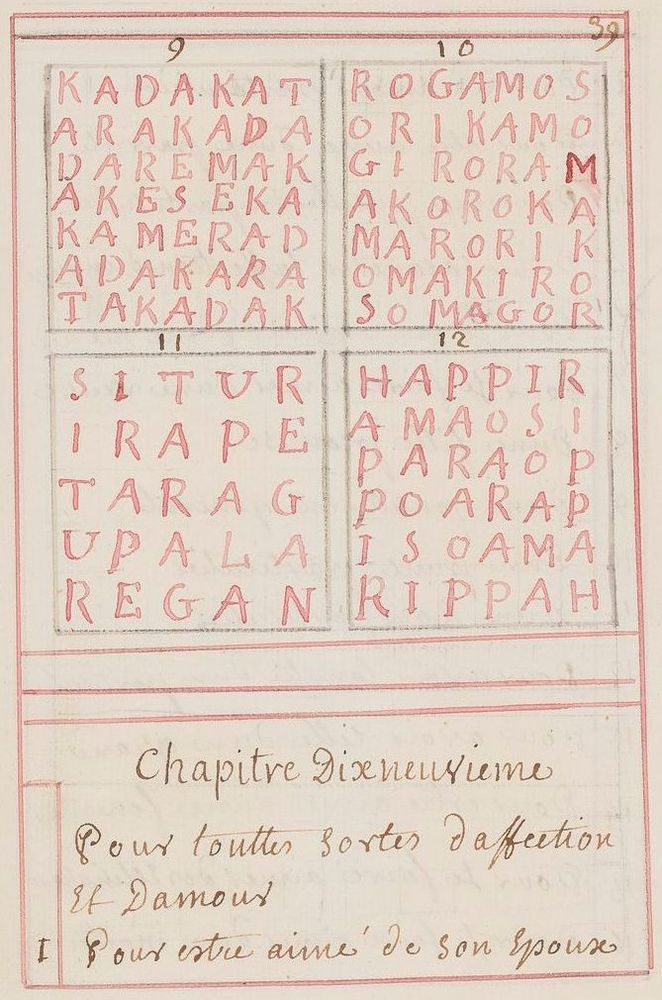 39
9
K A D A K A T
A R A K A D A
D A R E M A K
A K E S E K A
K A M E R A D
A D A K A R A
T A K A D A K
10
R O G A M O S
O R I K A M O
G I R O R A M
A K O R O K A
M A R O R I K
O M A K I R O
S O M A G O R
11
S I T U R
I R A P E
T A R A G
U P A L A
R E G A N
12
H A P P I R
A M A O S I
P A R A O P
P O A R A P
I S O A M A
R I P P A H
Chapitre Dixneuvieme
Pour touttes sortes daffection
Et Damour
I Pour estre aimé de son Epoux